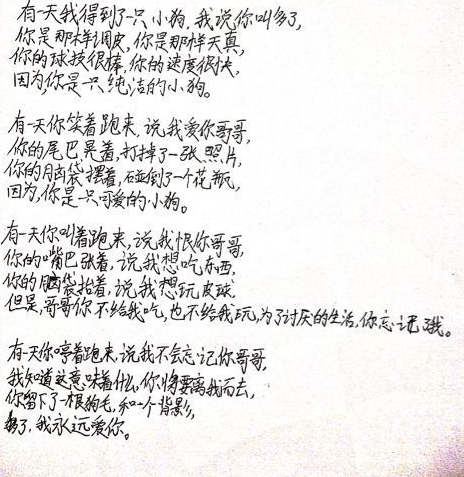 有一天我得到了一只小狗,我说你叫多了,
你是那样调皮,你是那样天真,
你的球技很棒,你的速度很快,
因为你是一只纯洁的小狗。
有一天你笑着跑来,说我爱你哥哥,
你的尾巴晃着,打掉了一张照片,
你的脑袋摆着,碰倒了一个花瓶,
因为,你是一只可爱的小狗。
有一天你叫着跑来,说我恨你哥哥,
你的嘴巴张着,说我想吃东西,
你的脑袋抬着,说我想玩皮球.
但是,哥哥你不给我吃,也不给我玩,为了讨厌的生活,你忘记我。
有一天你哼着跑来,说我不会忘记你哥哥,
我知道这意味着什么,你将要离我而去,
你留下了一根狗毛,和一个背影,
多了,我永远爱你。